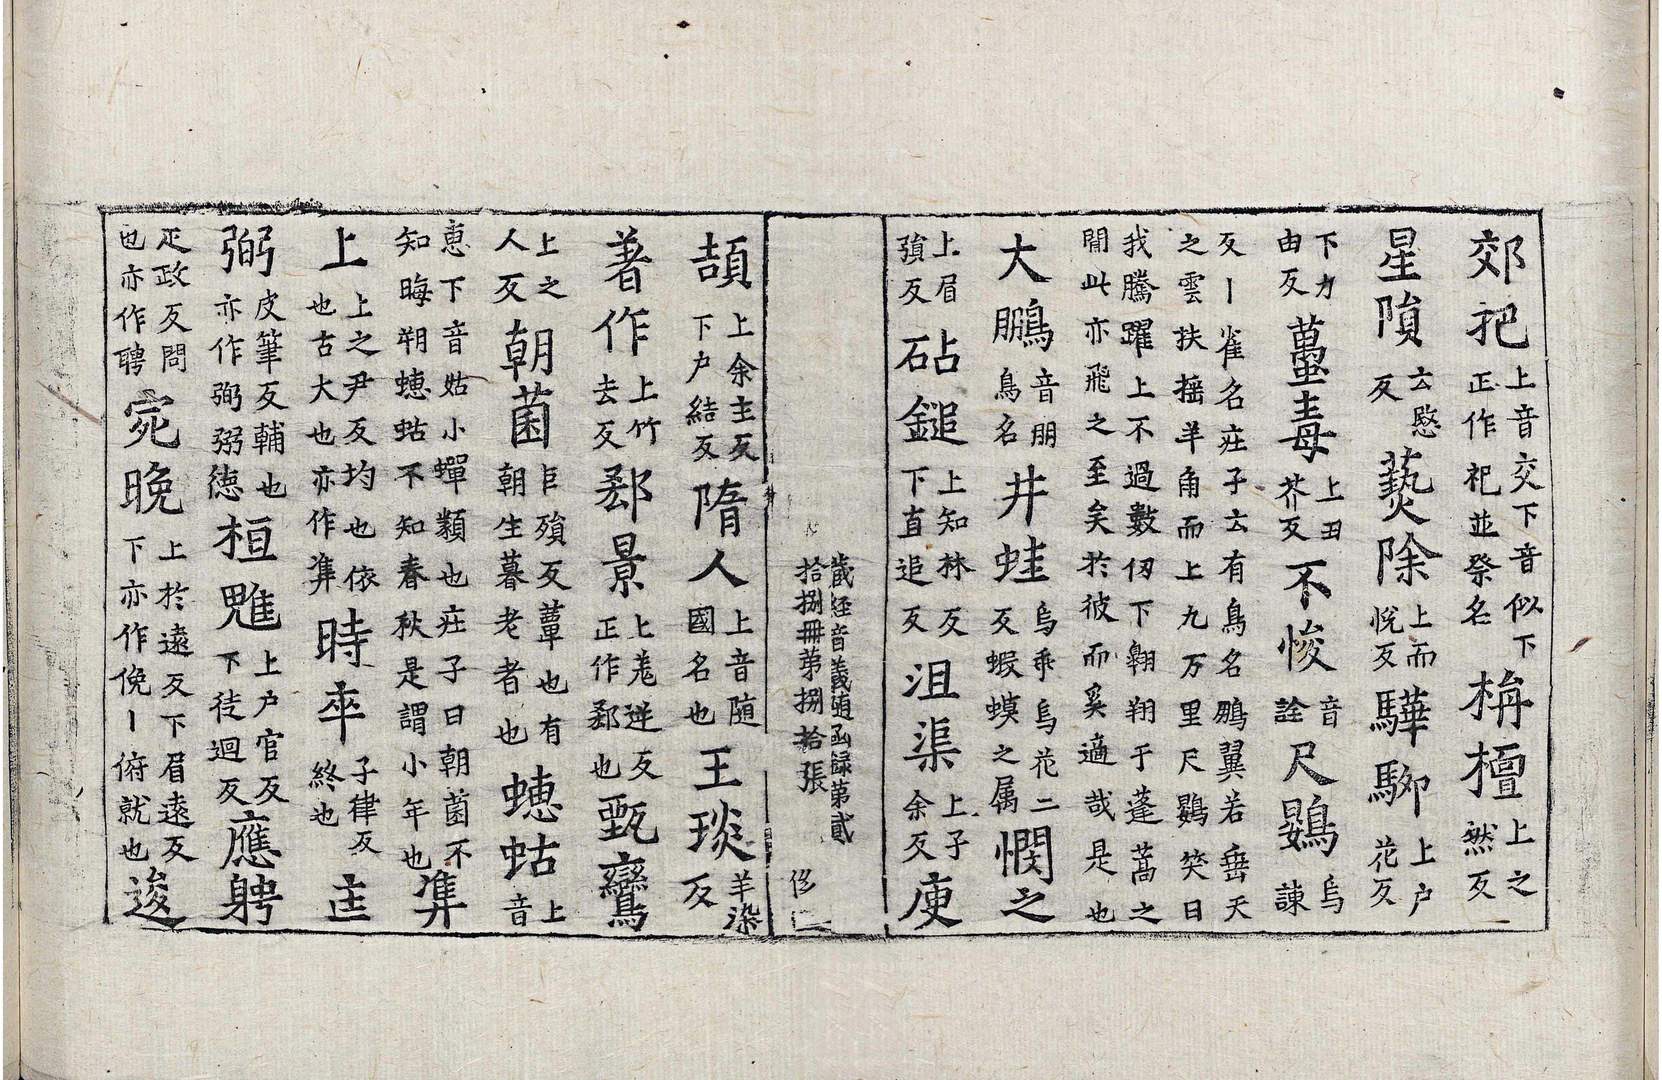 郊祀上音交下音似下正作祀並祭名栴檀上之然反一
星隕云愍反爇除上而悅反驊騮上户花反
下力由反蠆毒上丑芥反不悛音詮尺鷃烏諌
反丨雀名庄子云有鳥名鵬翼若垂天之雲扶揺羊角而上九万里尺鷃笑曰
我騰躍上不過數仞下翱翔于蓬蒿之間此亦飛之至矣於彼而奚適哉是也
大鵬音朋鳥名井蛙烏乖烏花二反蝦蟆之属憫之
上眉殞反砧鎚上知林反下直追反沮渠上子余反庾
藏經音義隨函録第貳拾捌冊苐捌拾張
頡上余主反下户結反隋人上音随國名也王琰羊染反
著作上竹去反郄景上羗逆反正作郄也甄鸞
上之人反朝菌巨殞反蕈也有朝生暮老者也蟪蛄上音
恵下音姑小蟬纇也庄子曰朝菌不知晦朔蟪蛄不知春秋是謂小年也準
上上之尹反均也依也古大也亦作準時卒子律反終也
弼皮筆反輔也亦作弻弼徳桓魋上户官反下徒迴反應聘
疋政反問也亦作聘宛晚上於遠反下眉遠反下亦作俛丨俯就也逡